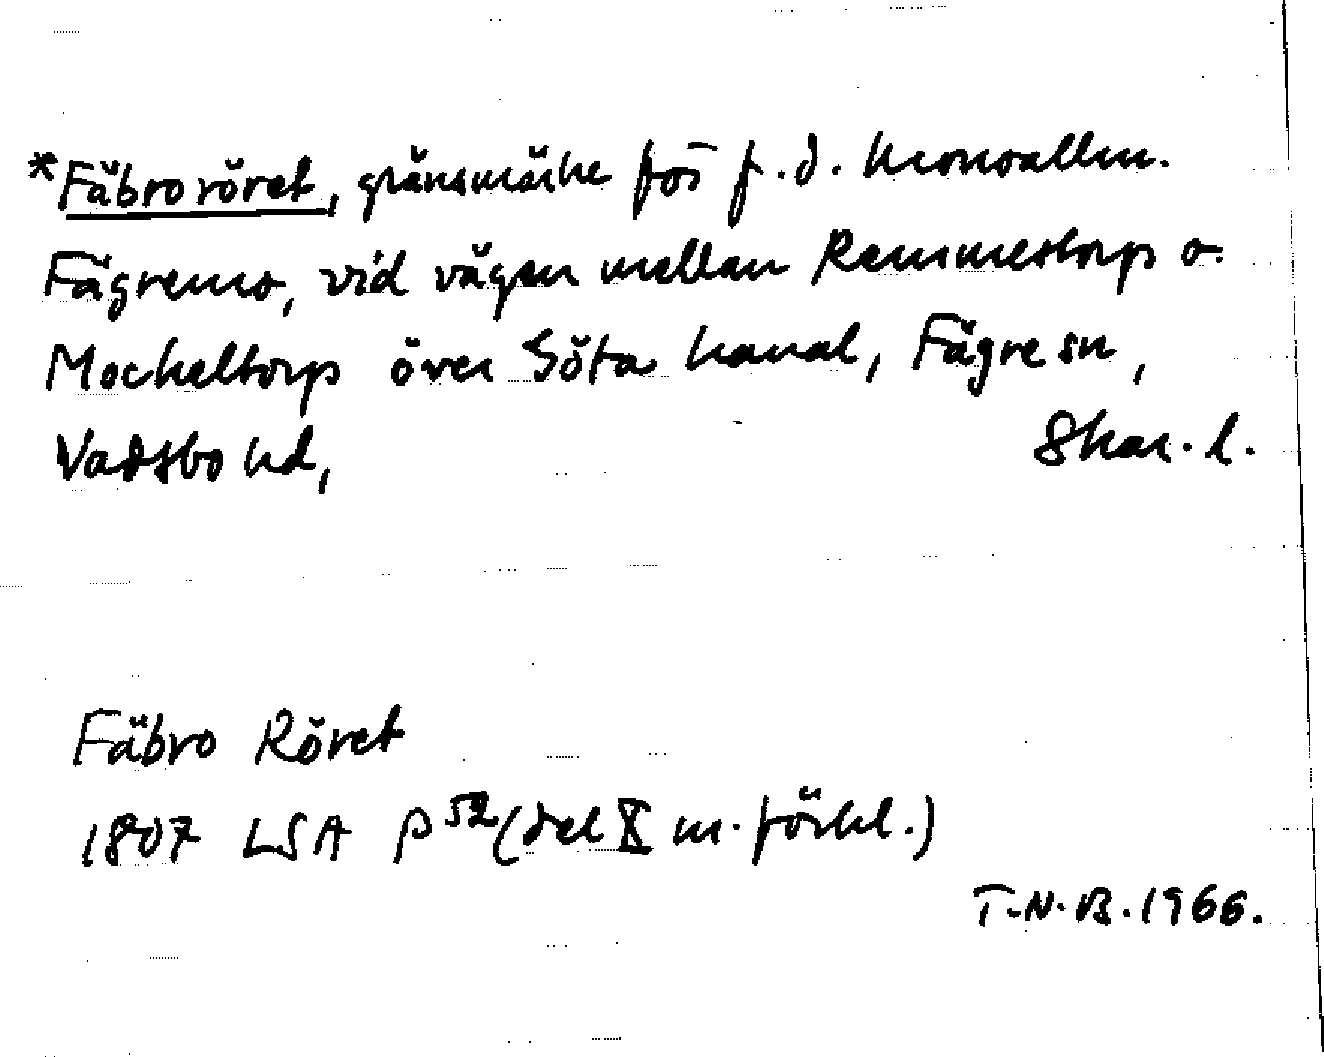 *Fäbroröret, gränsmärke för f.d. kronoallm.
Fägremo, vid vägen mellan Remmestorp o.
Mockeltorp över Göta kanal, Fägre sn,
Vadsbo hd, Skar. l.
Fäbro Röret
1807 LSA P 52 (del X m. förhl.)
T.N.B. 1966.